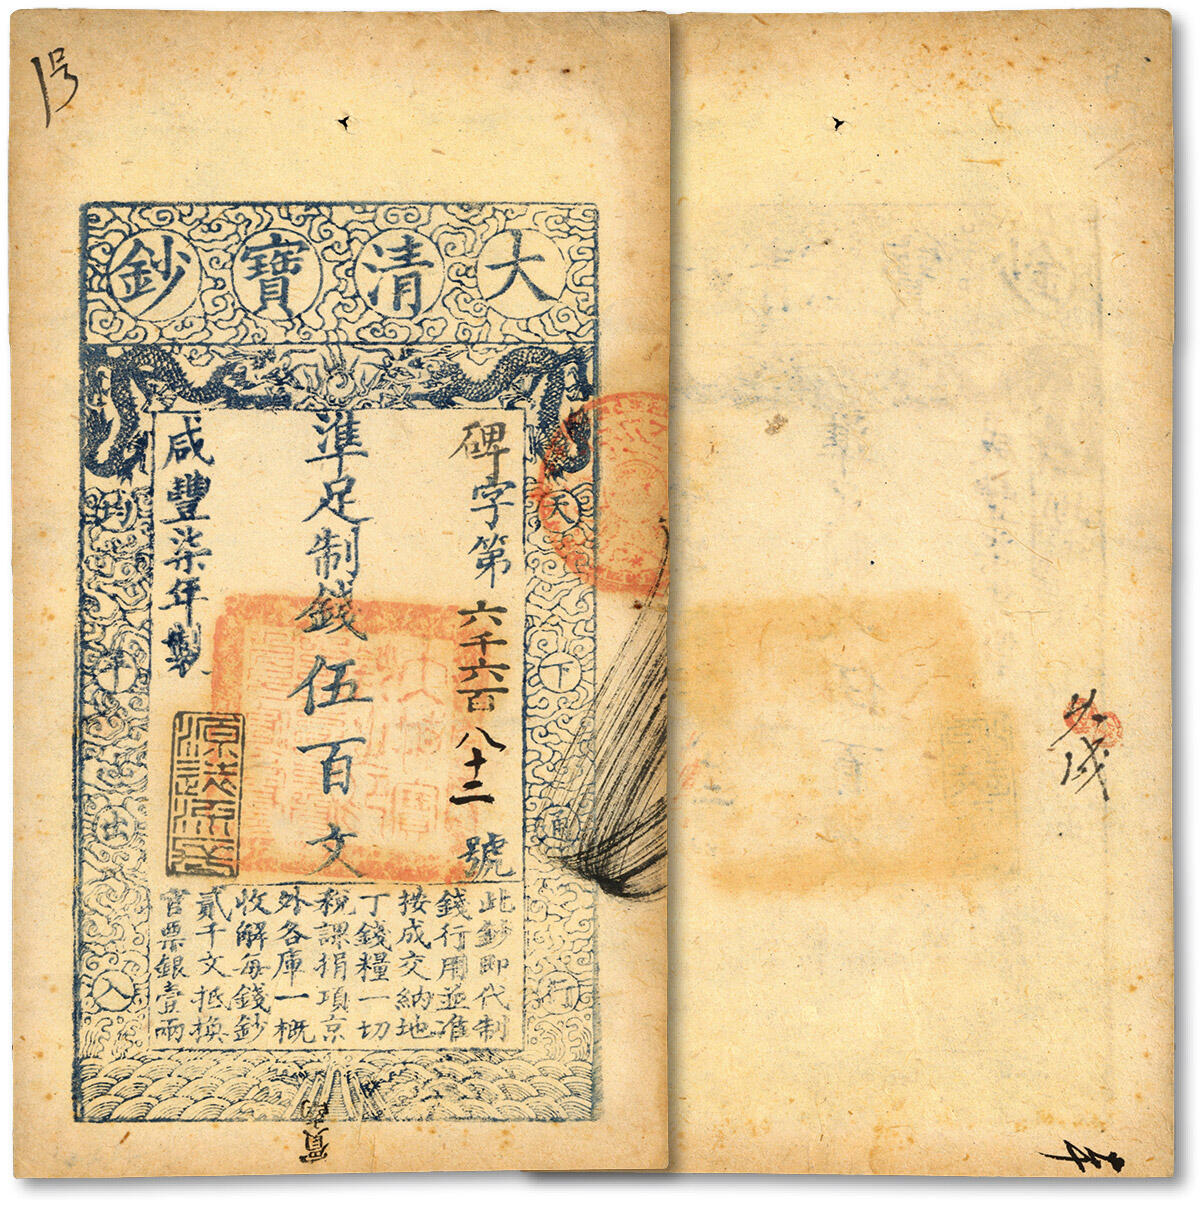 大清寶鈔
碑字第六千六百八十二號
準足制錢伍百文
咸豐柒年製
天下通行
均平出入
此鈔即代制
錢行用並准
按成交納地
丁錢糧一切
稅課捐項京
外各庫一概
收解每錢鈔
貳千文抵換
官票銀壹兩
源遠流長